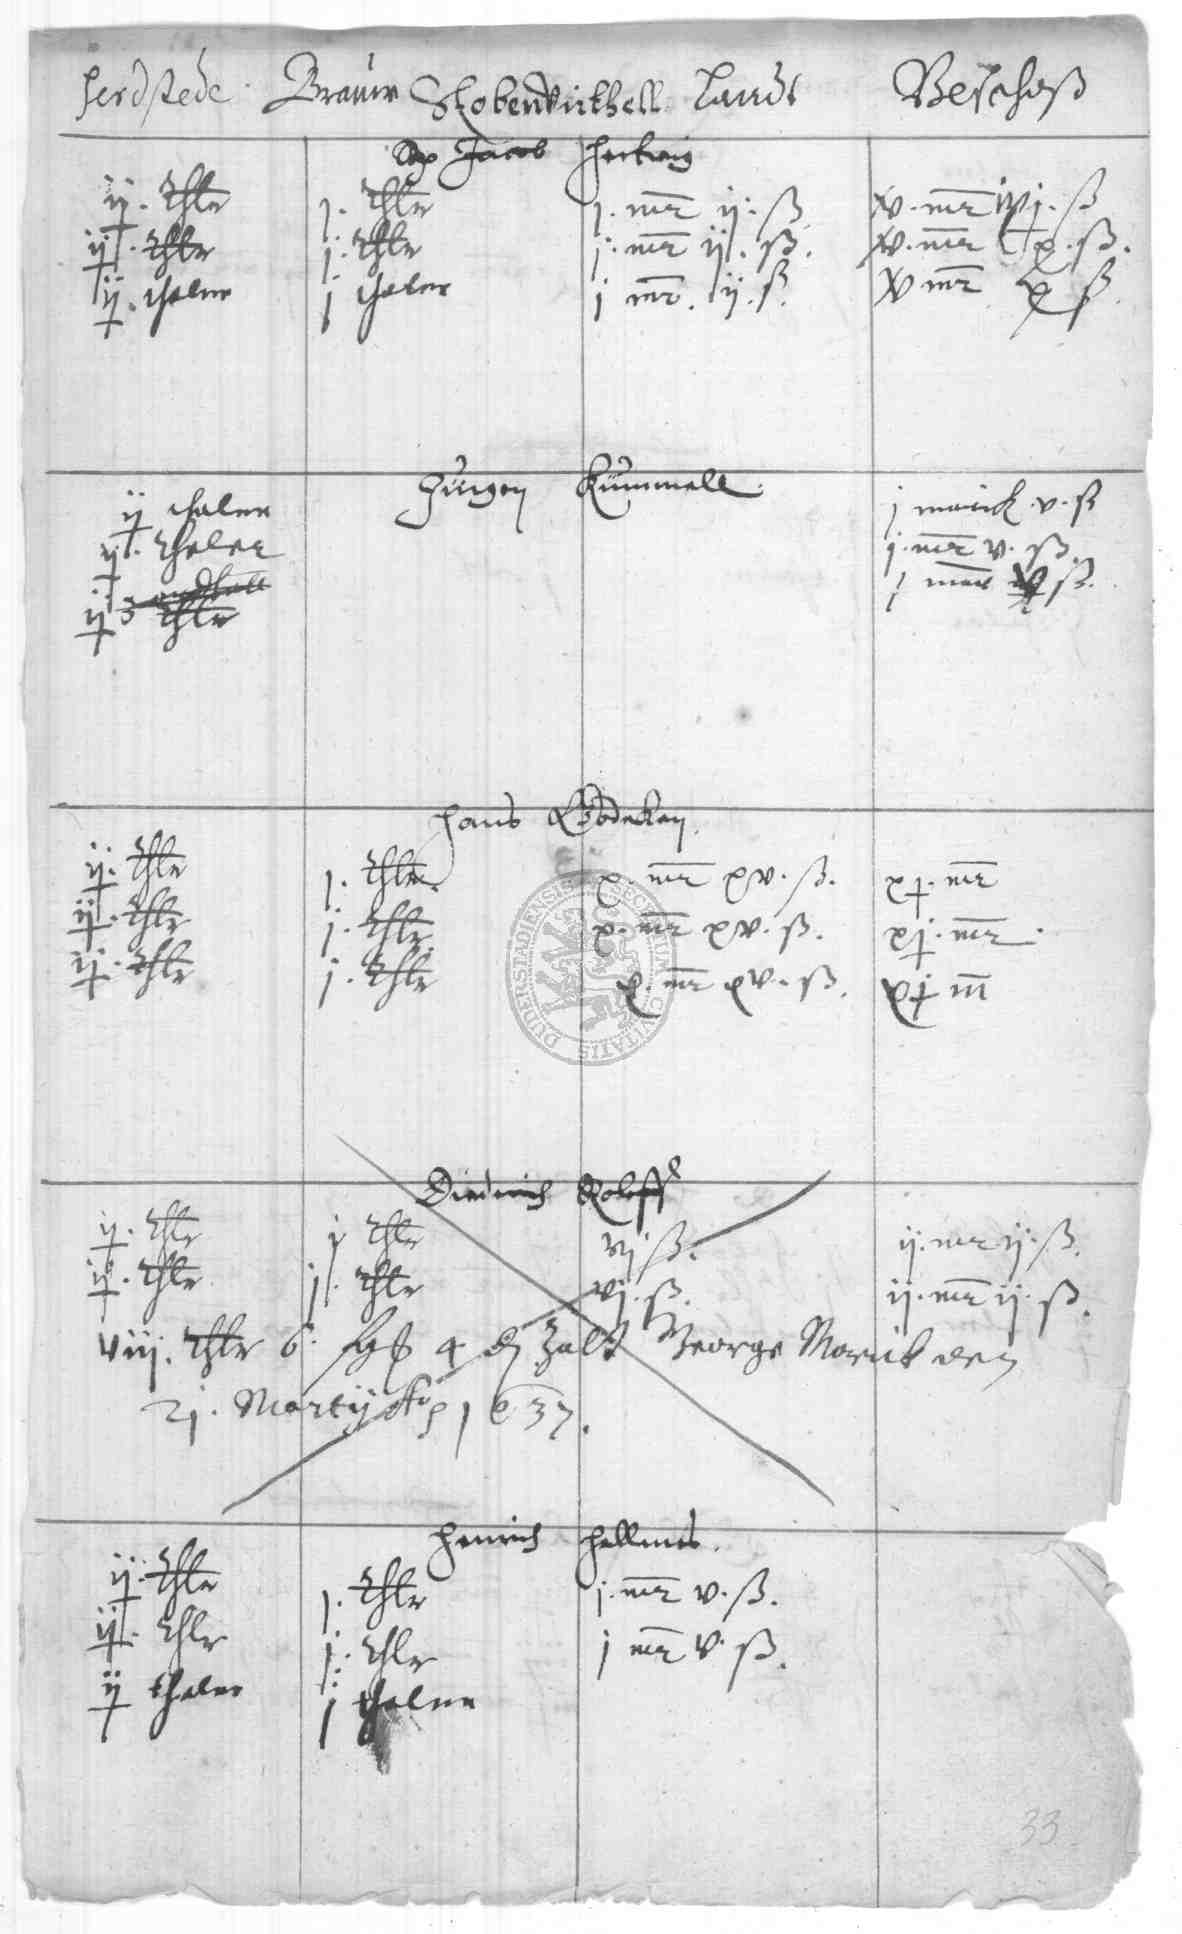 herdstede Brauw Stobenvirthell Landt Veschoß
Jacob Hertwig
ij. thlr j. thlr j. mr ij. ß xv. mr ß
ij. thlr j. thlr j. mr ij. ß. xv. mr x. ß.
ij. thaler j thaler j mr. ij. ß. xv mr x ß
Jurgen Kümmell
ij thaler j marck. v. ß
ij. thaler j. mr v. ß.
ij thlr j mar ß.
Hans Gödeken
ij. thlr j. thlr. x. mr xv. ß. xj. mr
ij. thlr j. thlr. x. mr xv. ß. xj. mr.
ij. thlr j. thlr x. mr xv. ß. xj m
SECRETUM CIVITATIS DUDERSTADIENSIS
Diederich Roloff
ij. thlr j thlr vj. ß. ij. mr ij. ß.
ij. thlr j. thlr vj. ß. ij. mr ij. ß.
viij. thlr 6. 4 zalt George den
21. Martij Ao 1637.
Henrich Hellmes.
ij. thlr j. thlr j. mr v. ß.
ij. thlr j. thlr j mr v. ß.
ij thaler j thaler
33